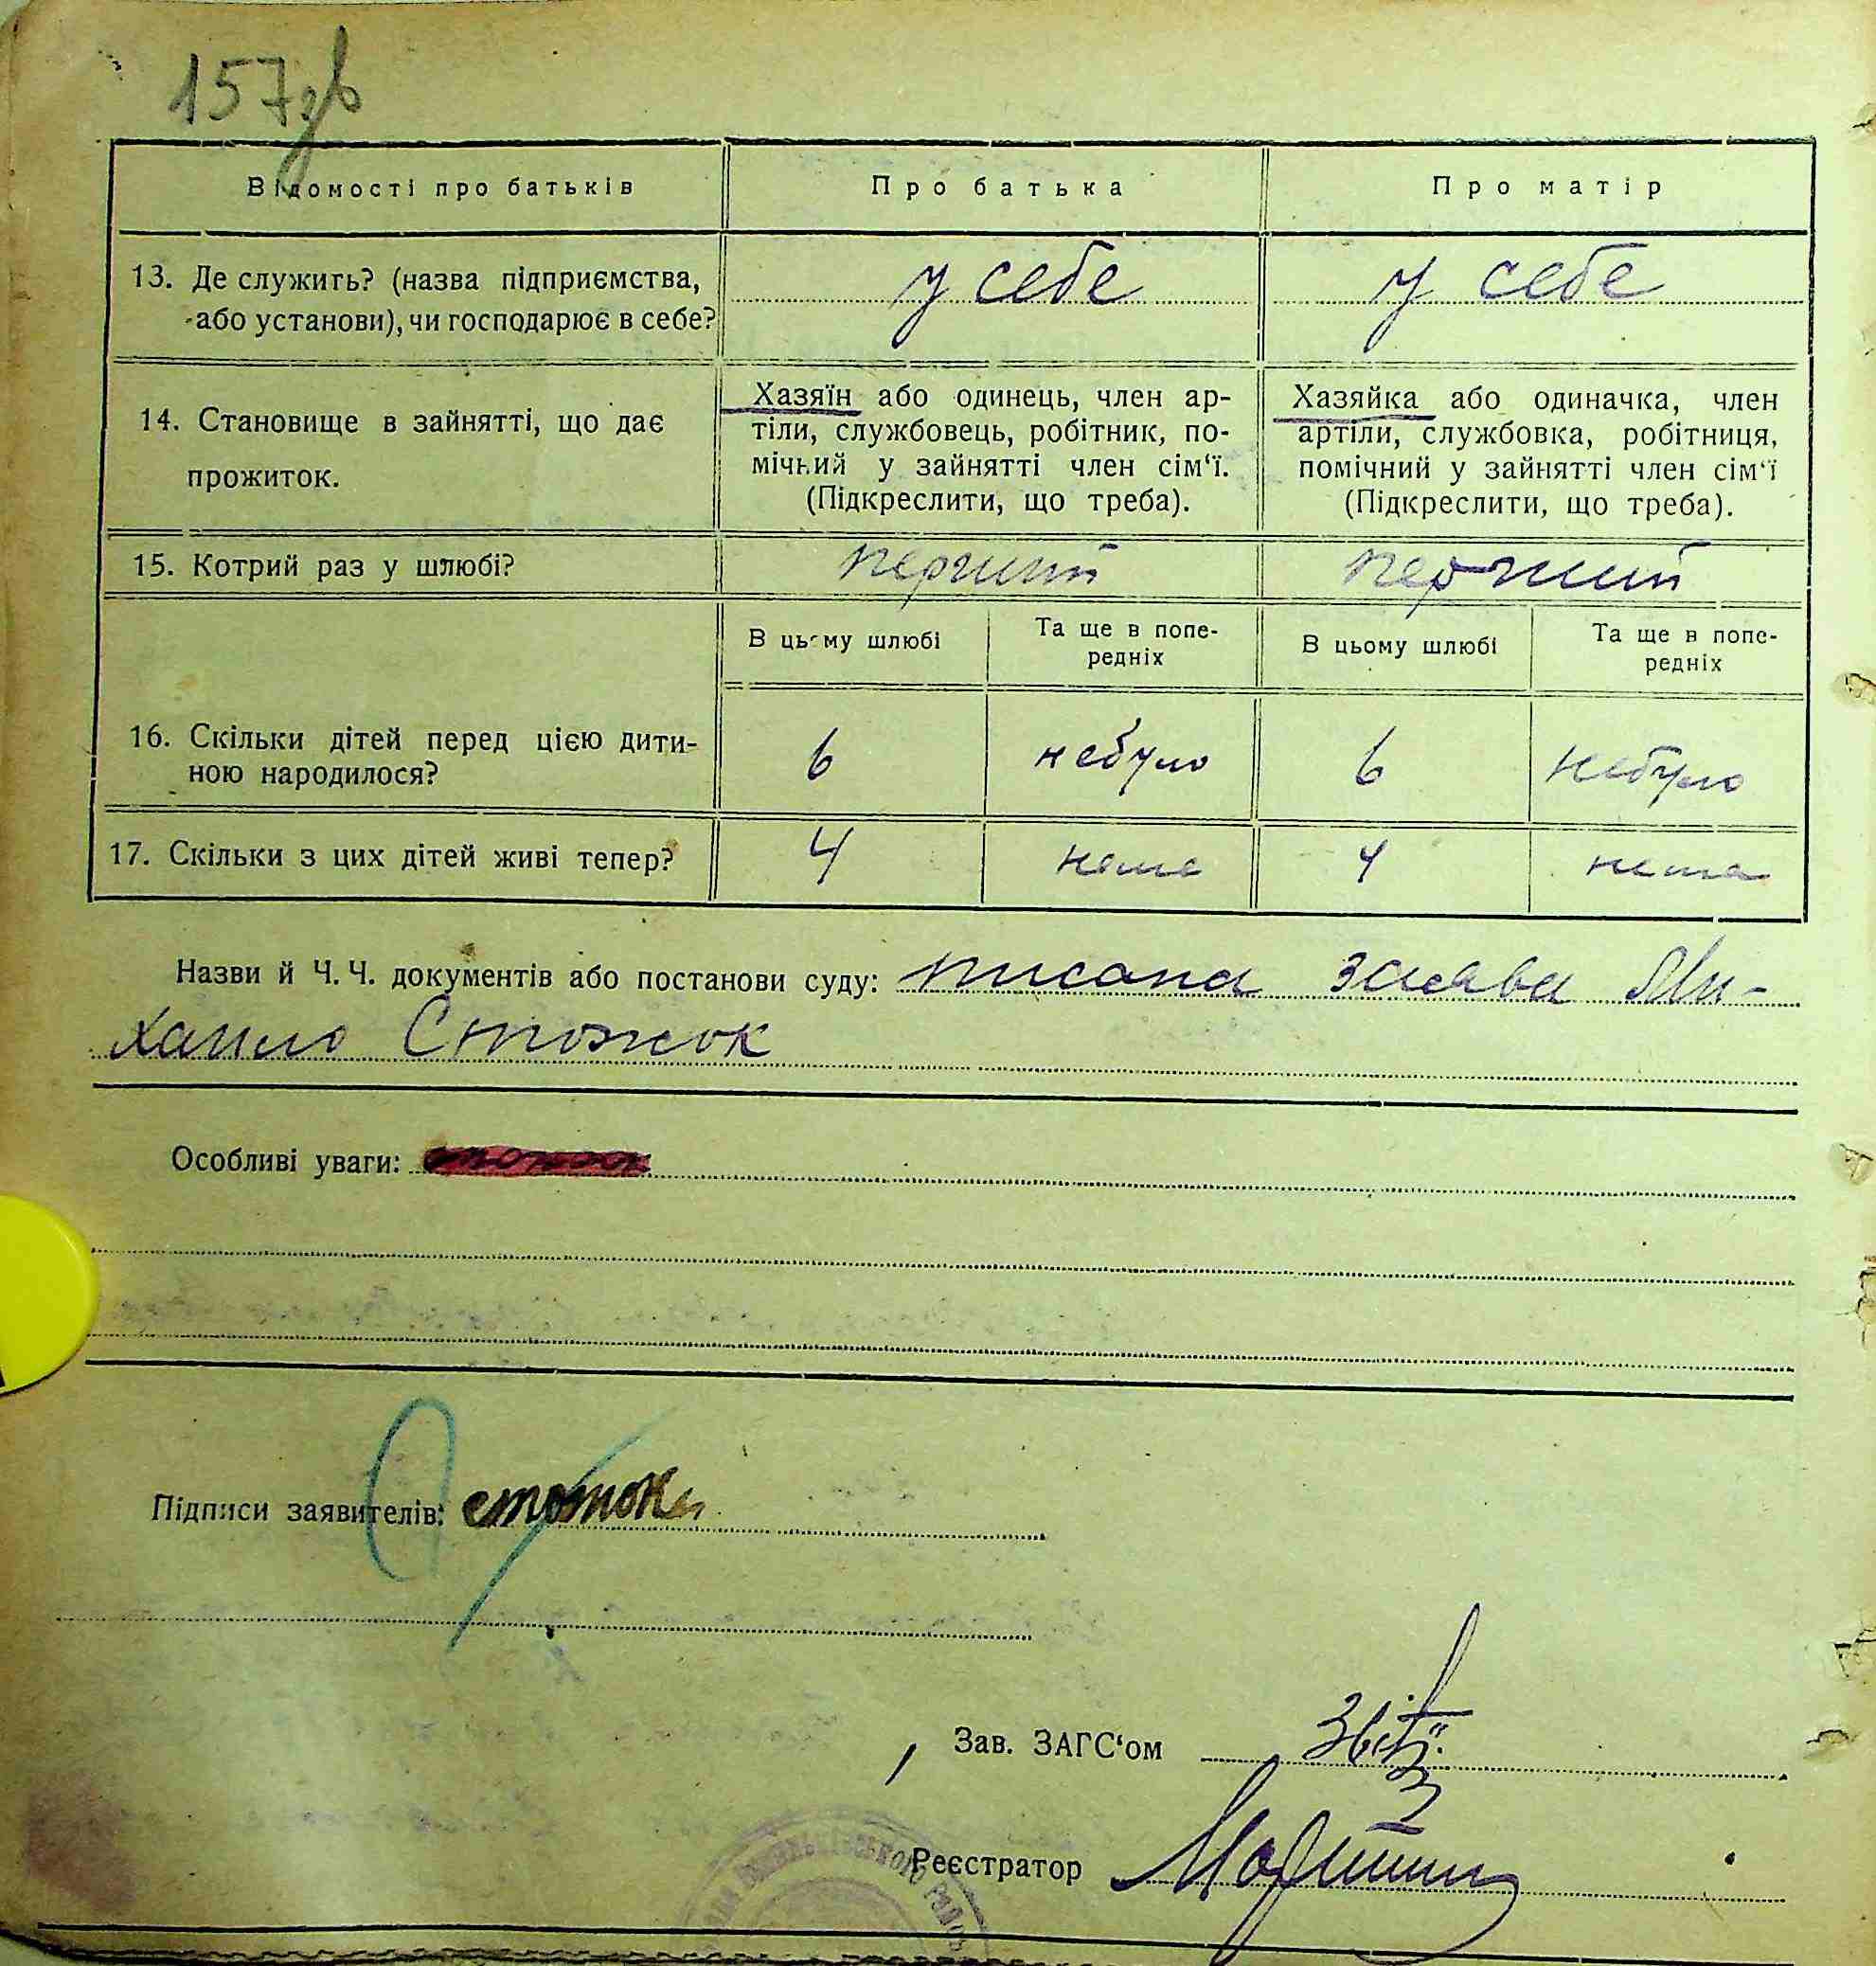 157зв
Відомості про батьків
Про батька
Про матір
13. Де служить? (назва підприємства,
або установи), чи господарює в себе?
у себе
у себе
14. Становище в зайнятті, що дає
прожиток.
Хазяїн або одинець, член ар-
тіли, службовець, робітник, по-
мічний у зайнятті член сім‘ї.
(Підкреслити, що треба).
Хазяйка або одиначка, член
артіли, службовка, робітниця,
помічний у зайнятті член сім‘ї
(Підкреслити, що треба).
15. Котрий раз у шлюбі?
перший
перший
В цьому шлюбі
Та ще в попе-
редніх
В цьому шлюбі
Та ще в попе-
редніх
16. Скільки дітей перед цією дити-
ною народилося?
6
небуло
6
небуло
17. Скільки з цих дітей живі тепер?
4
нема
4
нема
Назви й Ч. Ч. документів або постанови суду: писана заява Ми-
хаило Стожок
Особливі уваги:
Підписи заявителів:
Зав. ЗАГС‘ом
Реєстратор